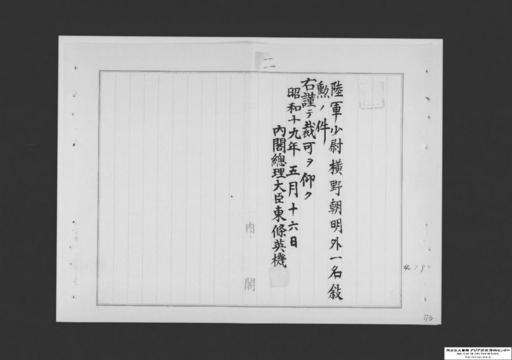 二
陸軍少尉横野朝明外一名敍
勲ノ件
右謹テ裁可ヲ仰ク
昭和十九年五月十六日
内閣總理大臣東條英機
内閣